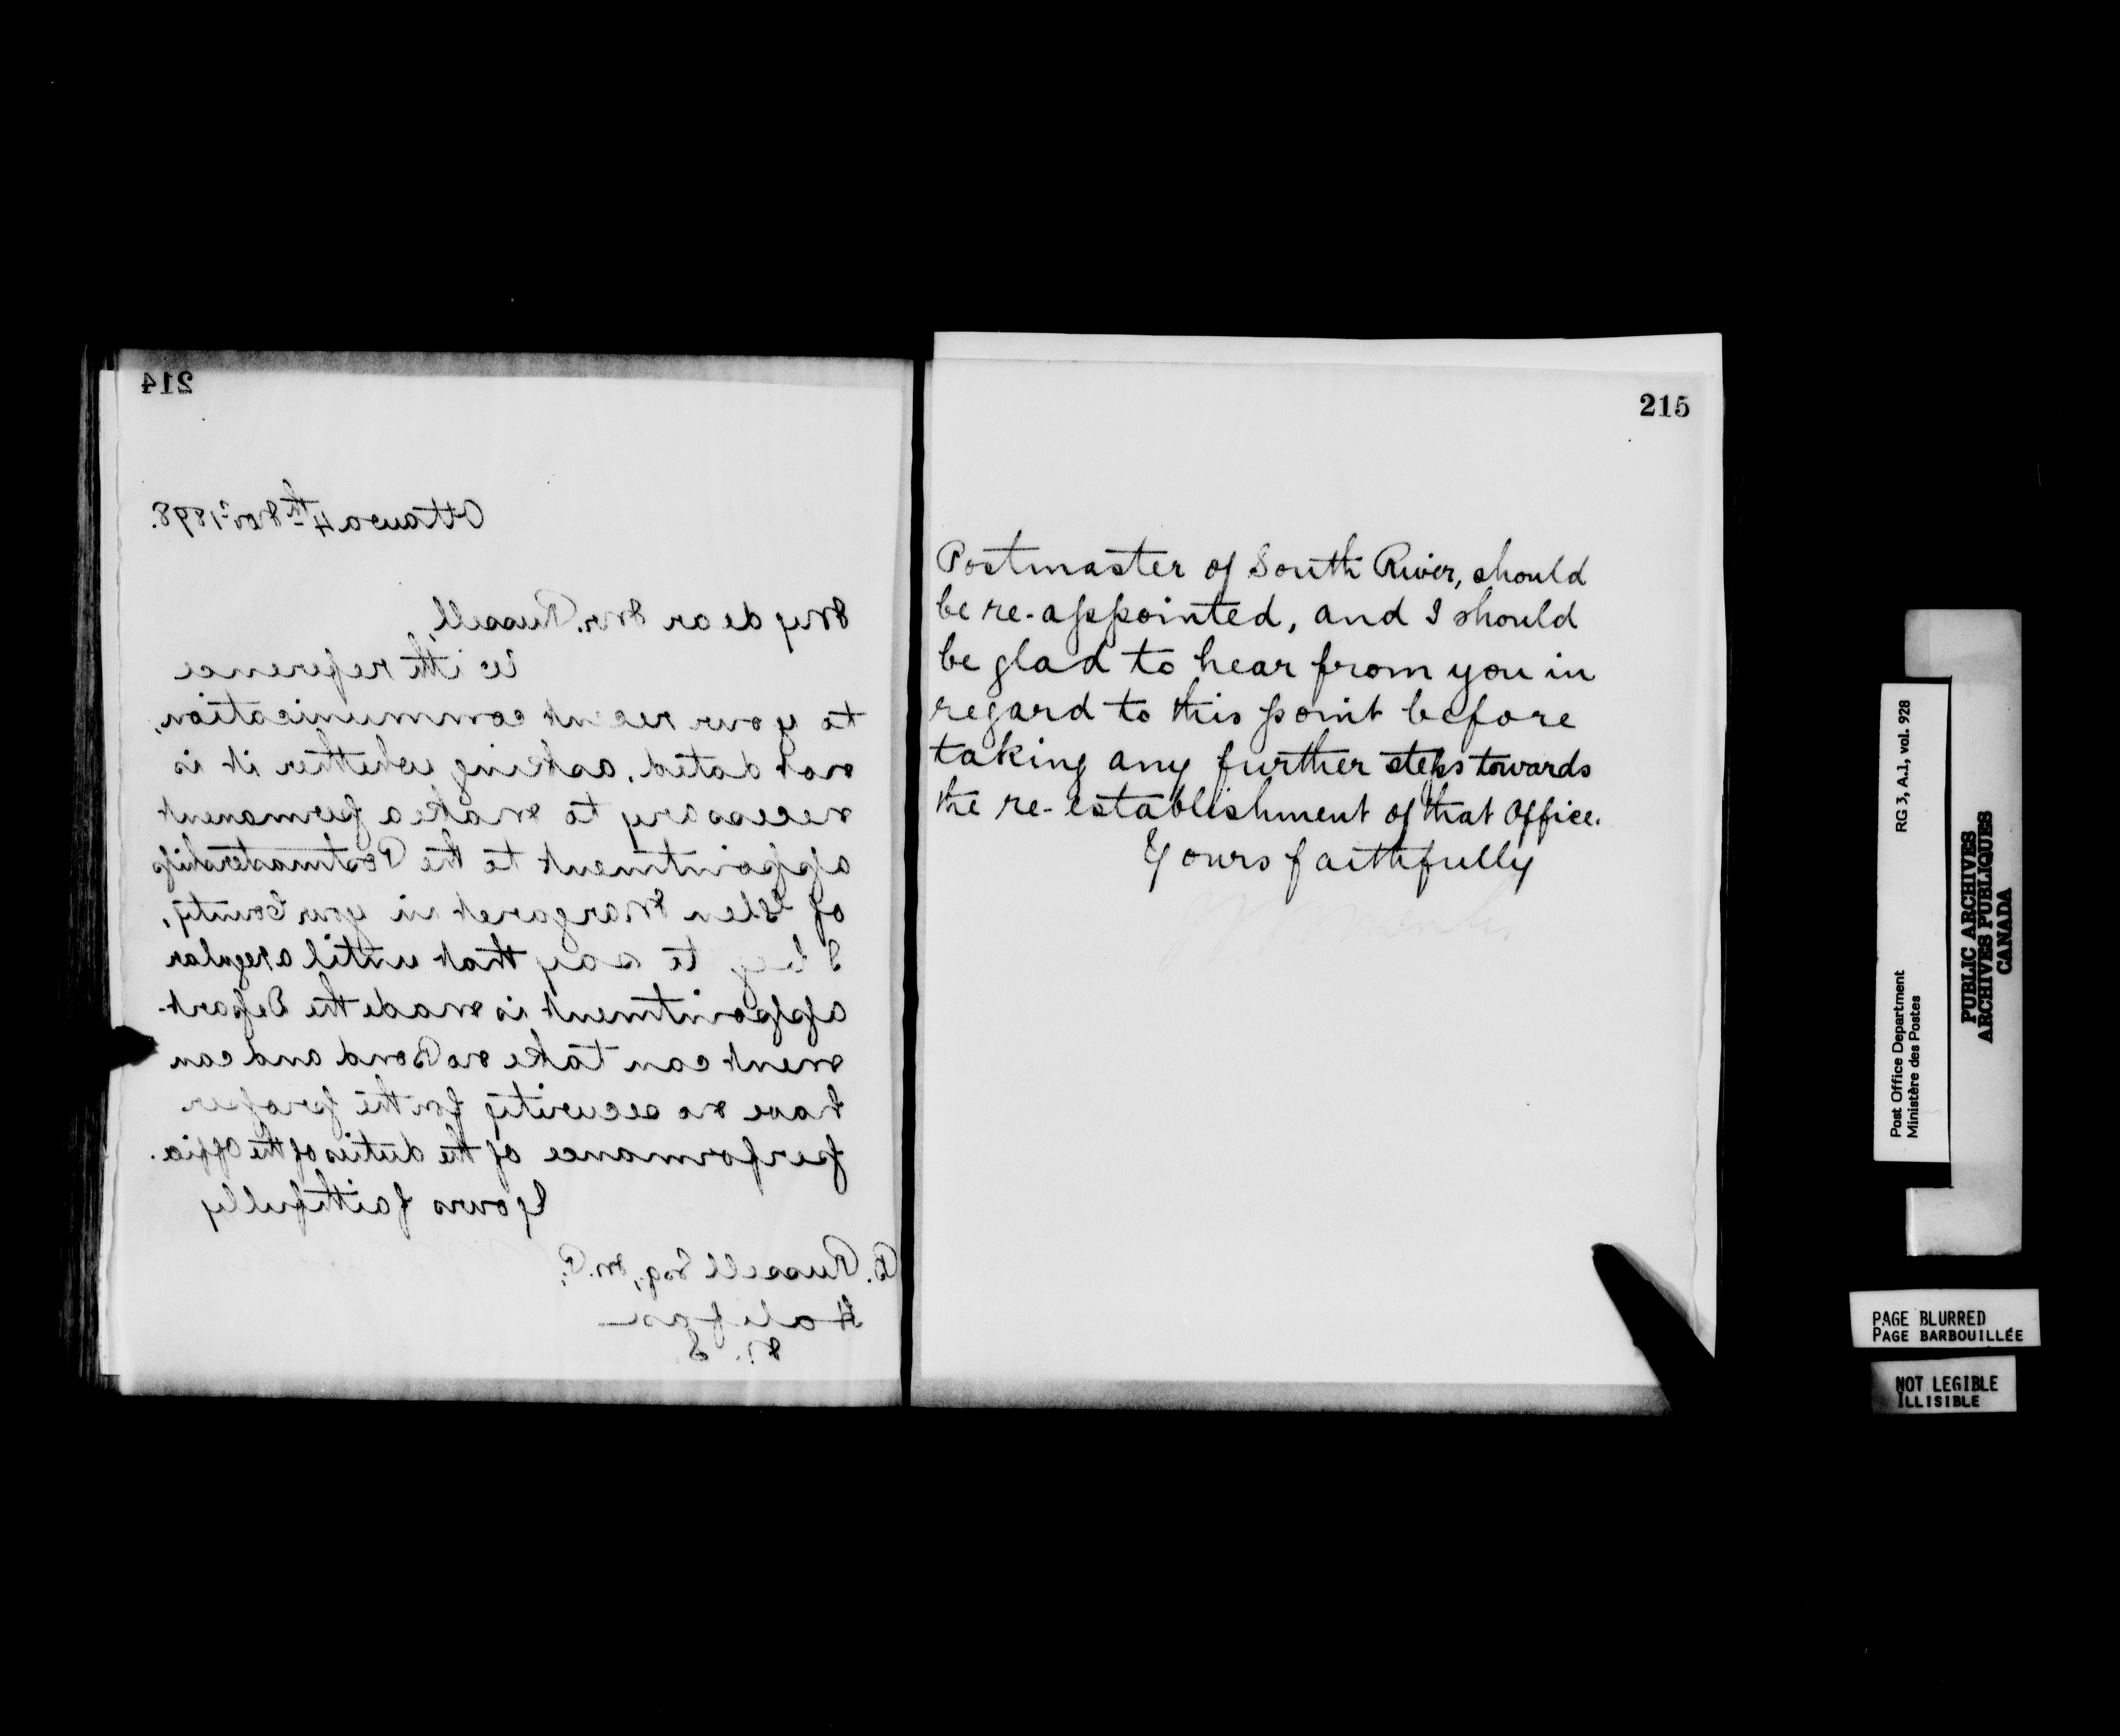 214
Ottawa 4th Nov. 1898.
My dear Mr. Russell,
With reference
to your recent communication,
not dated, asking whether it is
necessary to make a permanent
appointment to the Postmastership
of Glen Margaret in your County,
I beg to say that until a regular
appointment is made the Depart-
ment can take no Bond and can
have no security for the proper
performance of the duties of the Office.
Yours faithfully
B. Russell Esq, M.P.,
Halifax
N.S.
215
Postmaster of South River, should
be re-appointed, and I should
be glad to hear from you in
regard to this point before
taking any further steps towards
the re-establishment of that Office.
Yours faithfully
RG 3, A.1, vol. 928
Post Office Department
Ministère des Postes
PUBLIC ARCHIVES
ARCHIVES PUBLIQUES
CANADA
PAGE BLURRED
PAGE BARBOUILLÉE
NOT LEGIBLE
ILLISIBLE